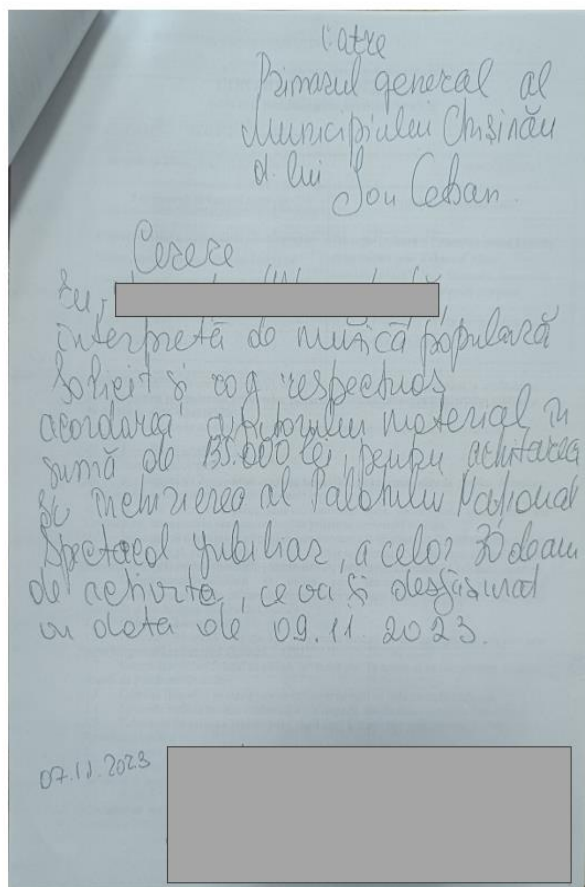 Catre
Primarul general al
Municipiului Chișinău
d. lui Ion Ceban.
Cerere
Eu,
interpretă de muzică populară
Solicit și rog respectuos
acordarea ajutorului material în
sumă de 135.000 lei, pentru achitarea
și închirierea al Palatului Național
Spectacol jubiliar, a celor 30 de ani
de activite, ce va fi desfășurat
în data de 09.11.2023.
07.11.2023